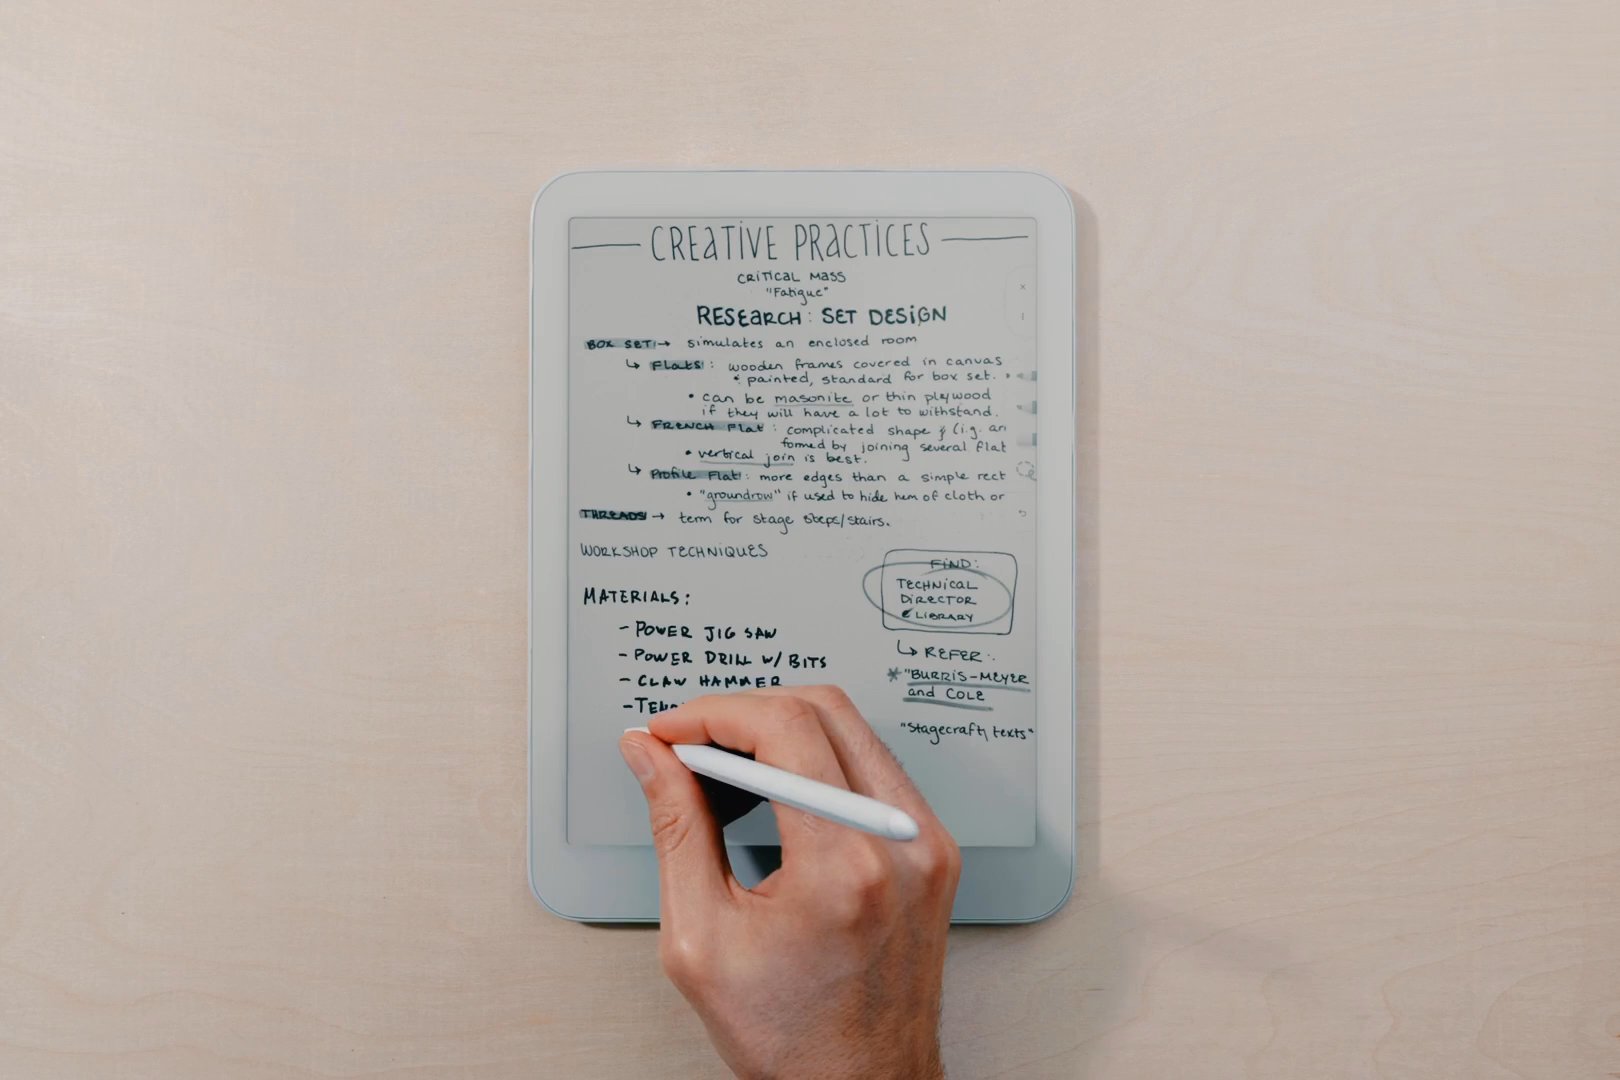 CREATIVE PRACTICES
CRITICAL MASS
"Fatigue"
RESEARCH: SET DESIGN
BOX SET: → simulates an enclosed room
↳ Flats: wooden frames covered in canvas
* painted, standard for box set.
• can be masonite or thin plywood
if they will have a lot to withstand.
↳ FRENCH Flat: complicated shape (i.g. an
formed by joining several flat
• vertical join is best.
↳ Profile Flat: more edges than a simple rect
• "groundrow" if used to hide hem of cloth or
THREADS → term for stage steps/stairs.
WORKSHOP TECHNIQUES
MATERIALS:
- POWER JIG SAW
- POWER DRILL W/ BITS
- CLAW HAMMER
FIND:
TECHNICAL
DIRECTOR
LIBRARY
↳ REFER:
* "BURRIS-MEYER
and COLE
"Stagecraft texts"